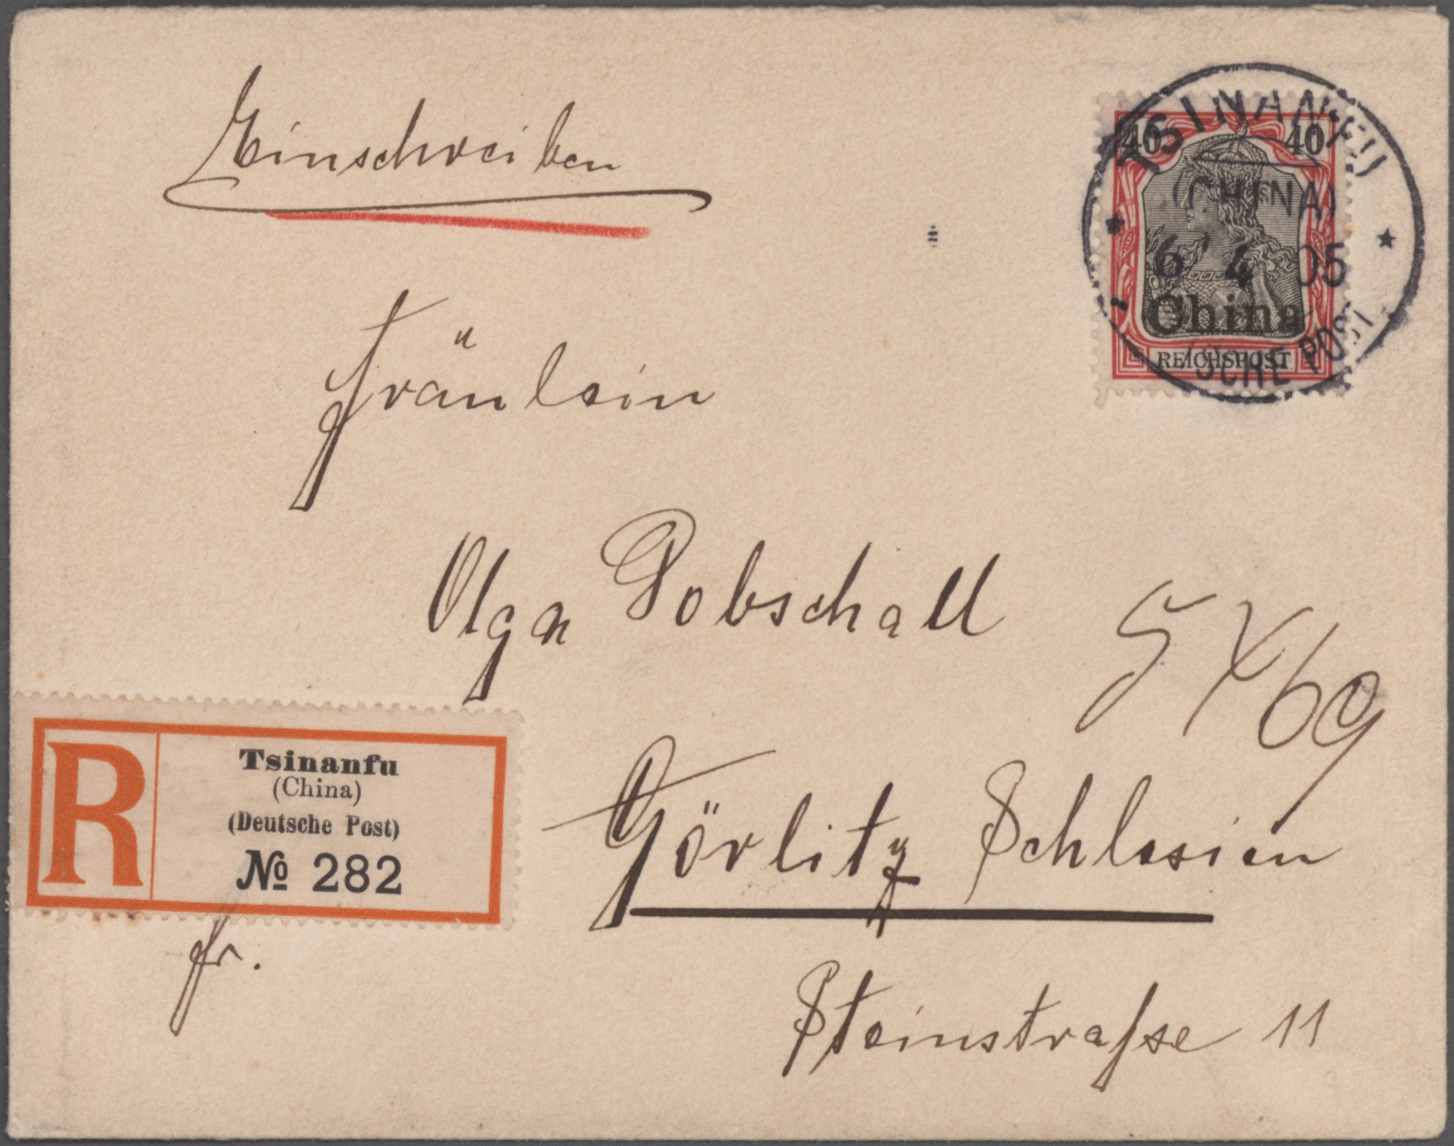 Einschreiben
40 40
China
REICHSPOST
TSINANFU
(CHINA)
6 4 05
SCHE POST
Fräulein
Olga Pobschall
Görlitz Schlesien
Steinstraſse 11
R
Tsinanfu
(China)
(Deutsche Post)
№ 282
fr.